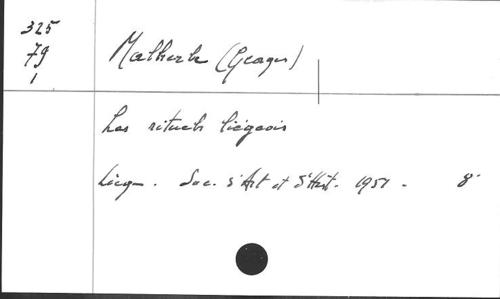 325
79
1
Malherbe (Georges)
Les rituels liégeois
Liège. Soc. d'Art et d'Hist. 1951. 8°